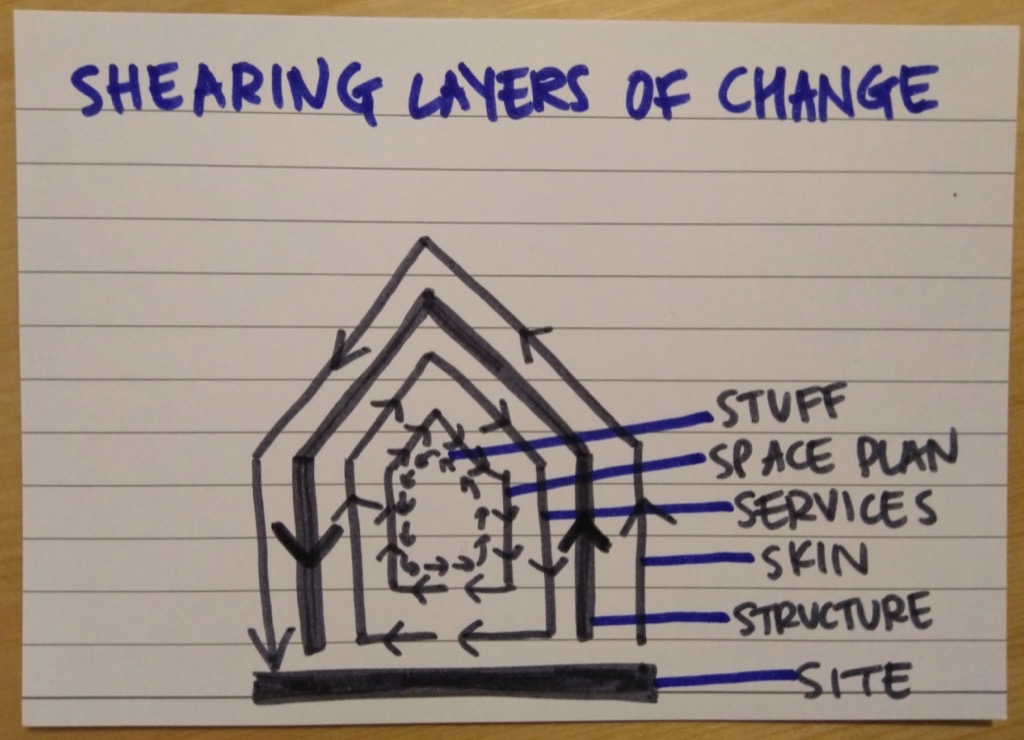 SHEARING LAYERS OF CHANGE
STUFF
SPACE PLAN
SERVICES
SKIN
STRUCTURE
SITE